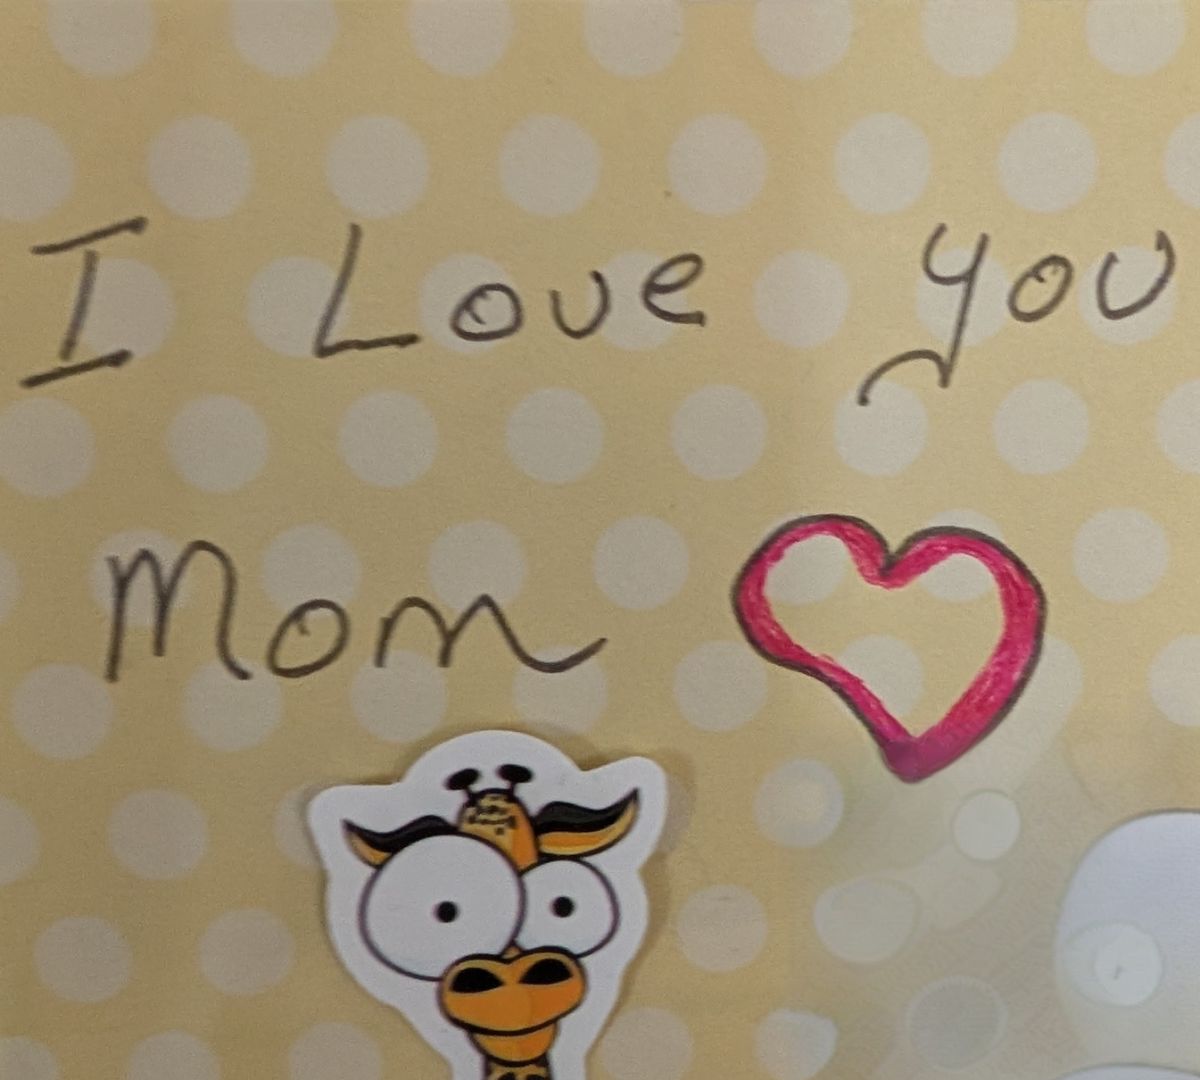 I Love you
Mom